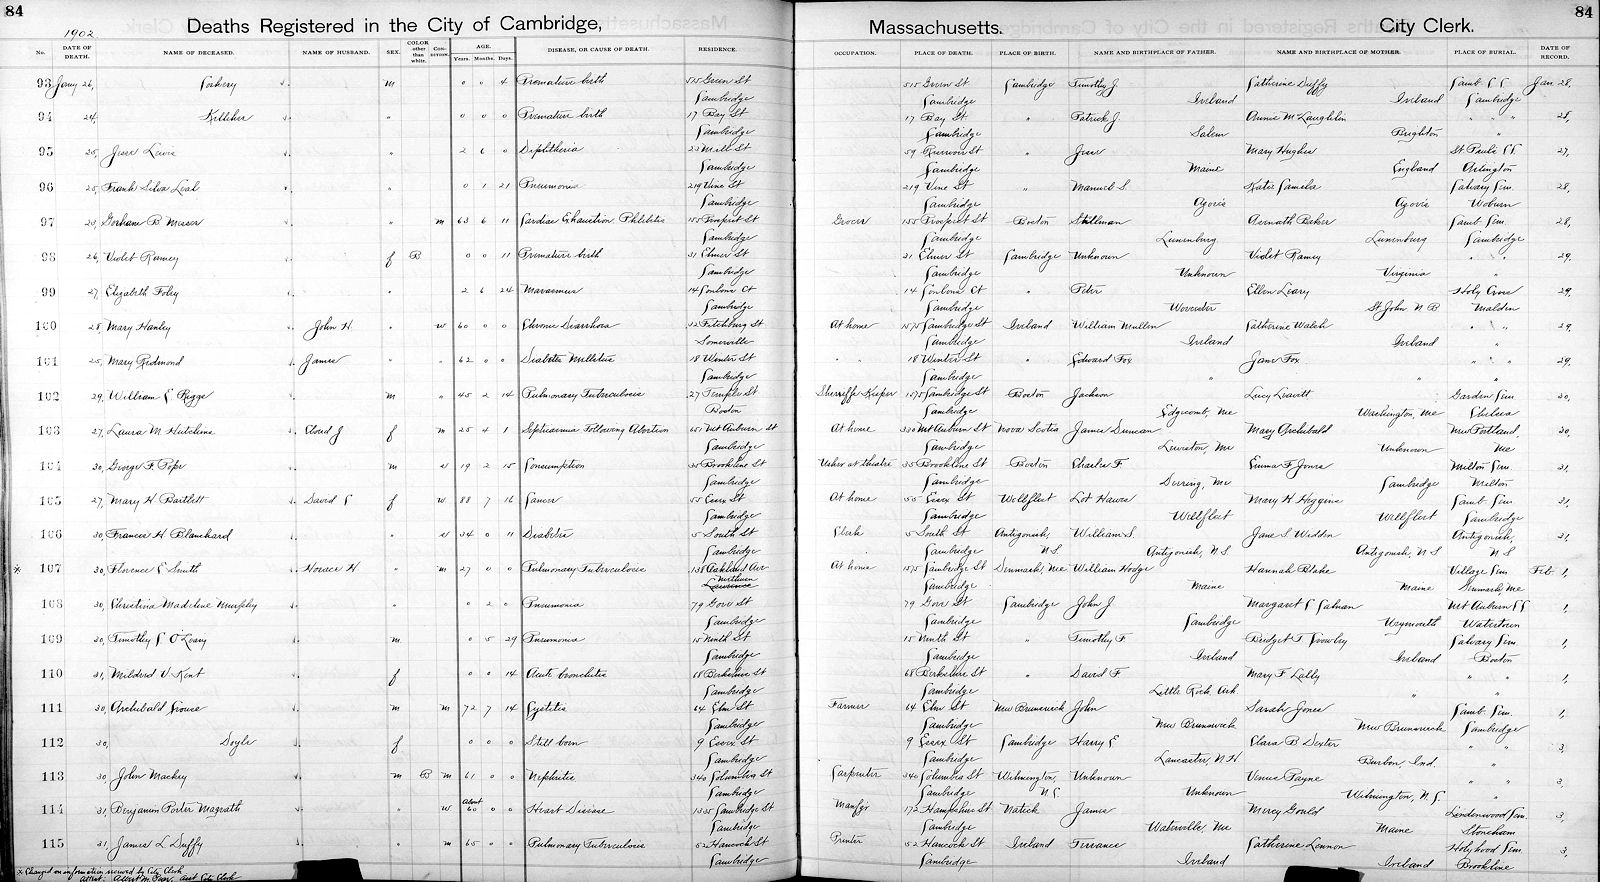 84
Deaths Registered in the City of Cambridge,
1902
No. DATE OF DEATH. NAME OF DECEASED. NAME OF HUSBAND. SEX. COLOR other than white. CONDITION. AGE. Years. Months. Days. DISEASE, OR CAUSE OF DEATH. RESIDENCE.
93 Jany 26, m 0 0 4 Premature birth 515 Green St
Cambridge
94 24, Kelliher " 0 0 0 Premature birth 17 Bay St
Cambridge
95 25, Jesse Lewis " 2 6 0 Diphtheria
Cambridge
96 25, Frank Silva Leal " 0 1 21 Pneumonia 219 Vine St
Cambridge
97 23, Gorham B. Messer " m 63 6 11 Cardiac Exhaustion Phlebitis 155 Prospect St
Cambridge
98 26, Violet Ramey f B 0 0 11 Premature birth 31 Elmer St
Cambridge
99 27, Elizabeth Foley " 2 6 24 Marasmus 14 Ct
Cambridge
100 28, Mary Hanley John H. " w 60 0 0 Chronic Diarrhoea 32 Fitchburg St
Somerville
101 25, Mary Redmond James " " 62 0 0 Diabetes Mellitus 18 Winter St
Cambridge
102 29, William E Riggs m " 45 2 14 Pulmonary Tuberculosis 27 Temple St
Boston
103 27, Laura M Hutchins Cloud J f m 25 4 1 Septicaemia Following Abortion 651 Mt Auburn St
Cambridge
104 30, George F. Pope m 19 2 15 Consumption 35 Brookline St
Cambridge
105 27, Mary H Bartlett David C f w 88 7 16 Cancer 55 Essex St
Cambridge
106 30, Frances H Blanchard " 34 0 11 Diabetes 5 South St
Cambridge
※ 107 30, Florence E Smith Horace H " m 27 0 0 Pulmonary Tuberculosis 138 Oakland Ave
Methuen
Lawrence
108 30, Christina Madeline Murphy " 0 2 0 Pneumonia 79 Gore St
Cambridge
109 30, Timothy C O'Leary m 0 5 29 Pneumonia 15 Ninth St
Cambridge
110 31, Mildred V. Kent f 0 0 14 Acute bronchitis 68 Berkshire St
Cambridge
111 30, Archibald Crouse m m 72 7 14 Cystitis 64 Elm St
Cambridge
112 30, Doyle f 0 0 0 Still born 9 Essex St
Cambridge
113 30, John Mackey m B m 61 0 0 Nephritis 340 Columbia St
Cambridge
114 31, Benjamin Porter Magrath " w About 60 0 0 Heart Disease Cambridge St
Cambridge
115 31, James L Duffy " m 65 0 0 Pulmonary Tuberculosis 52 Hancock St
Cambridge
※ Changed on information received by City Clerk
Attest: Asst City Clerk
Massachusetts. City Clerk.
84
OCCUPATION. PLACE OF DEATH. PLACE OF BIRTH. NAME AND BIRTHPLACE OF FATHER. NAME AND BIRTHPLACE OF MOTHER. PLACE OF BURIAL. DATE OF RECORD.
515 Green St Cambridge Timothy J. Catherine Duffy Camb. Jan 28,
Cambridge Ireland Ireland Cambridge
17 Bay St " Patrick J. Annie McLaughlin " " 28,
Cambridge Salem Brighton "
59 Reservoir St " Jesse Mary Hughes St Pauls 27,
Cambridge Maine England Arlington
219 Vine St " Manuel S. Katie Calvary Cem. 28,
Cambridge Woburn
Grocer 155 Prospect St Boston Stillman Asenath Baker Camb. Cem. 28,
Cambridge Lunenburg Lunenburg Cambridge
31 Elmer St Cambridge Unknown Violet Ramey " " 29,
Cambridge Unknown Virginia "
14 Ct " Peter Ellen Leary Holy Cross 29,
Cambridge Worcester St John N B Malden
At home 1575 Cambridge St Ireland William Mullen Catherine Walsh " " 29,
Cambridge Ireland Ireland "
" " 18 Winter St " Edward Fox Jane Fox " " 29,
Cambridge " " "
Sherriffs Keeper 1575 Cambridge St Boston Jackson Lucy Leavitt Garden Cem. 30,
Cambridge Edgecomb, Me Washington, Me Chelsea
At home 330 Mt Auburn St Nova Scotia James Duncan Mary Archibald New Portland, 30,
Cambridge Lewiston, Me Unknown Me
Usher at theatre 35 Brookline St Boston Charles F. Emma F. Jones Milton Cem. 31,
Cambridge Deering, Me Cambridge Milton
At home 55 Essex St Wellfleet Lot Hawes Mary H Higgins Camb. Cem. 31,
Cambridge Wellfleet Wellfleet Cambridge
Clerk 5 South St Antigonish, William S. Jane S. Widden Antigonish, 31,
Cambridge N S. Antigonish, N S. Antigonish, N S N S
At home 1575 Cambridge St Denmark, Me William Hodge Hannah Blake Village Cem Feb. 1,
Cambridge Maine Maine Denmark, Me
79 Gore St Cambridge John J Margaret C Calnan Mt Auburn 1,
Cambridge Cambridge Weymouth Watertown
15 Ninth St " Timothy F Bridget T Crowley Calvary Cem 1,
Cambridge Ireland Ireland Boston
68 Berkshire St " David F Mary F Lally " " 1,
Cambridge Little Rock Ark " "
Farmer 64 Elm St New Brunswick John Sarah Jones Camb. Cem. 1,
Cambridge New Brunswick New Brunswick Cambridge
9 Essex St Cambridge Harry E Clara B Dexter " " 3,
Cambridge Lancaster, N H Burton, Ind. "
Carpenter 340 Columbia St Wilmington, Unknown Venus Payne " " 3,
Cambridge N C. Unknown Wilmington, N. C. "
Manfgr 172 Hampshire St Natick James Mercy Gould Lindenwood Cem. 3,
Cambridge Waterville, Me Maine Stoneham
Printer 52 Hancock St Ireland Terrance Catherine Lennon Holyhood Cem 3,
Cambridge Ireland Ireland Brookline